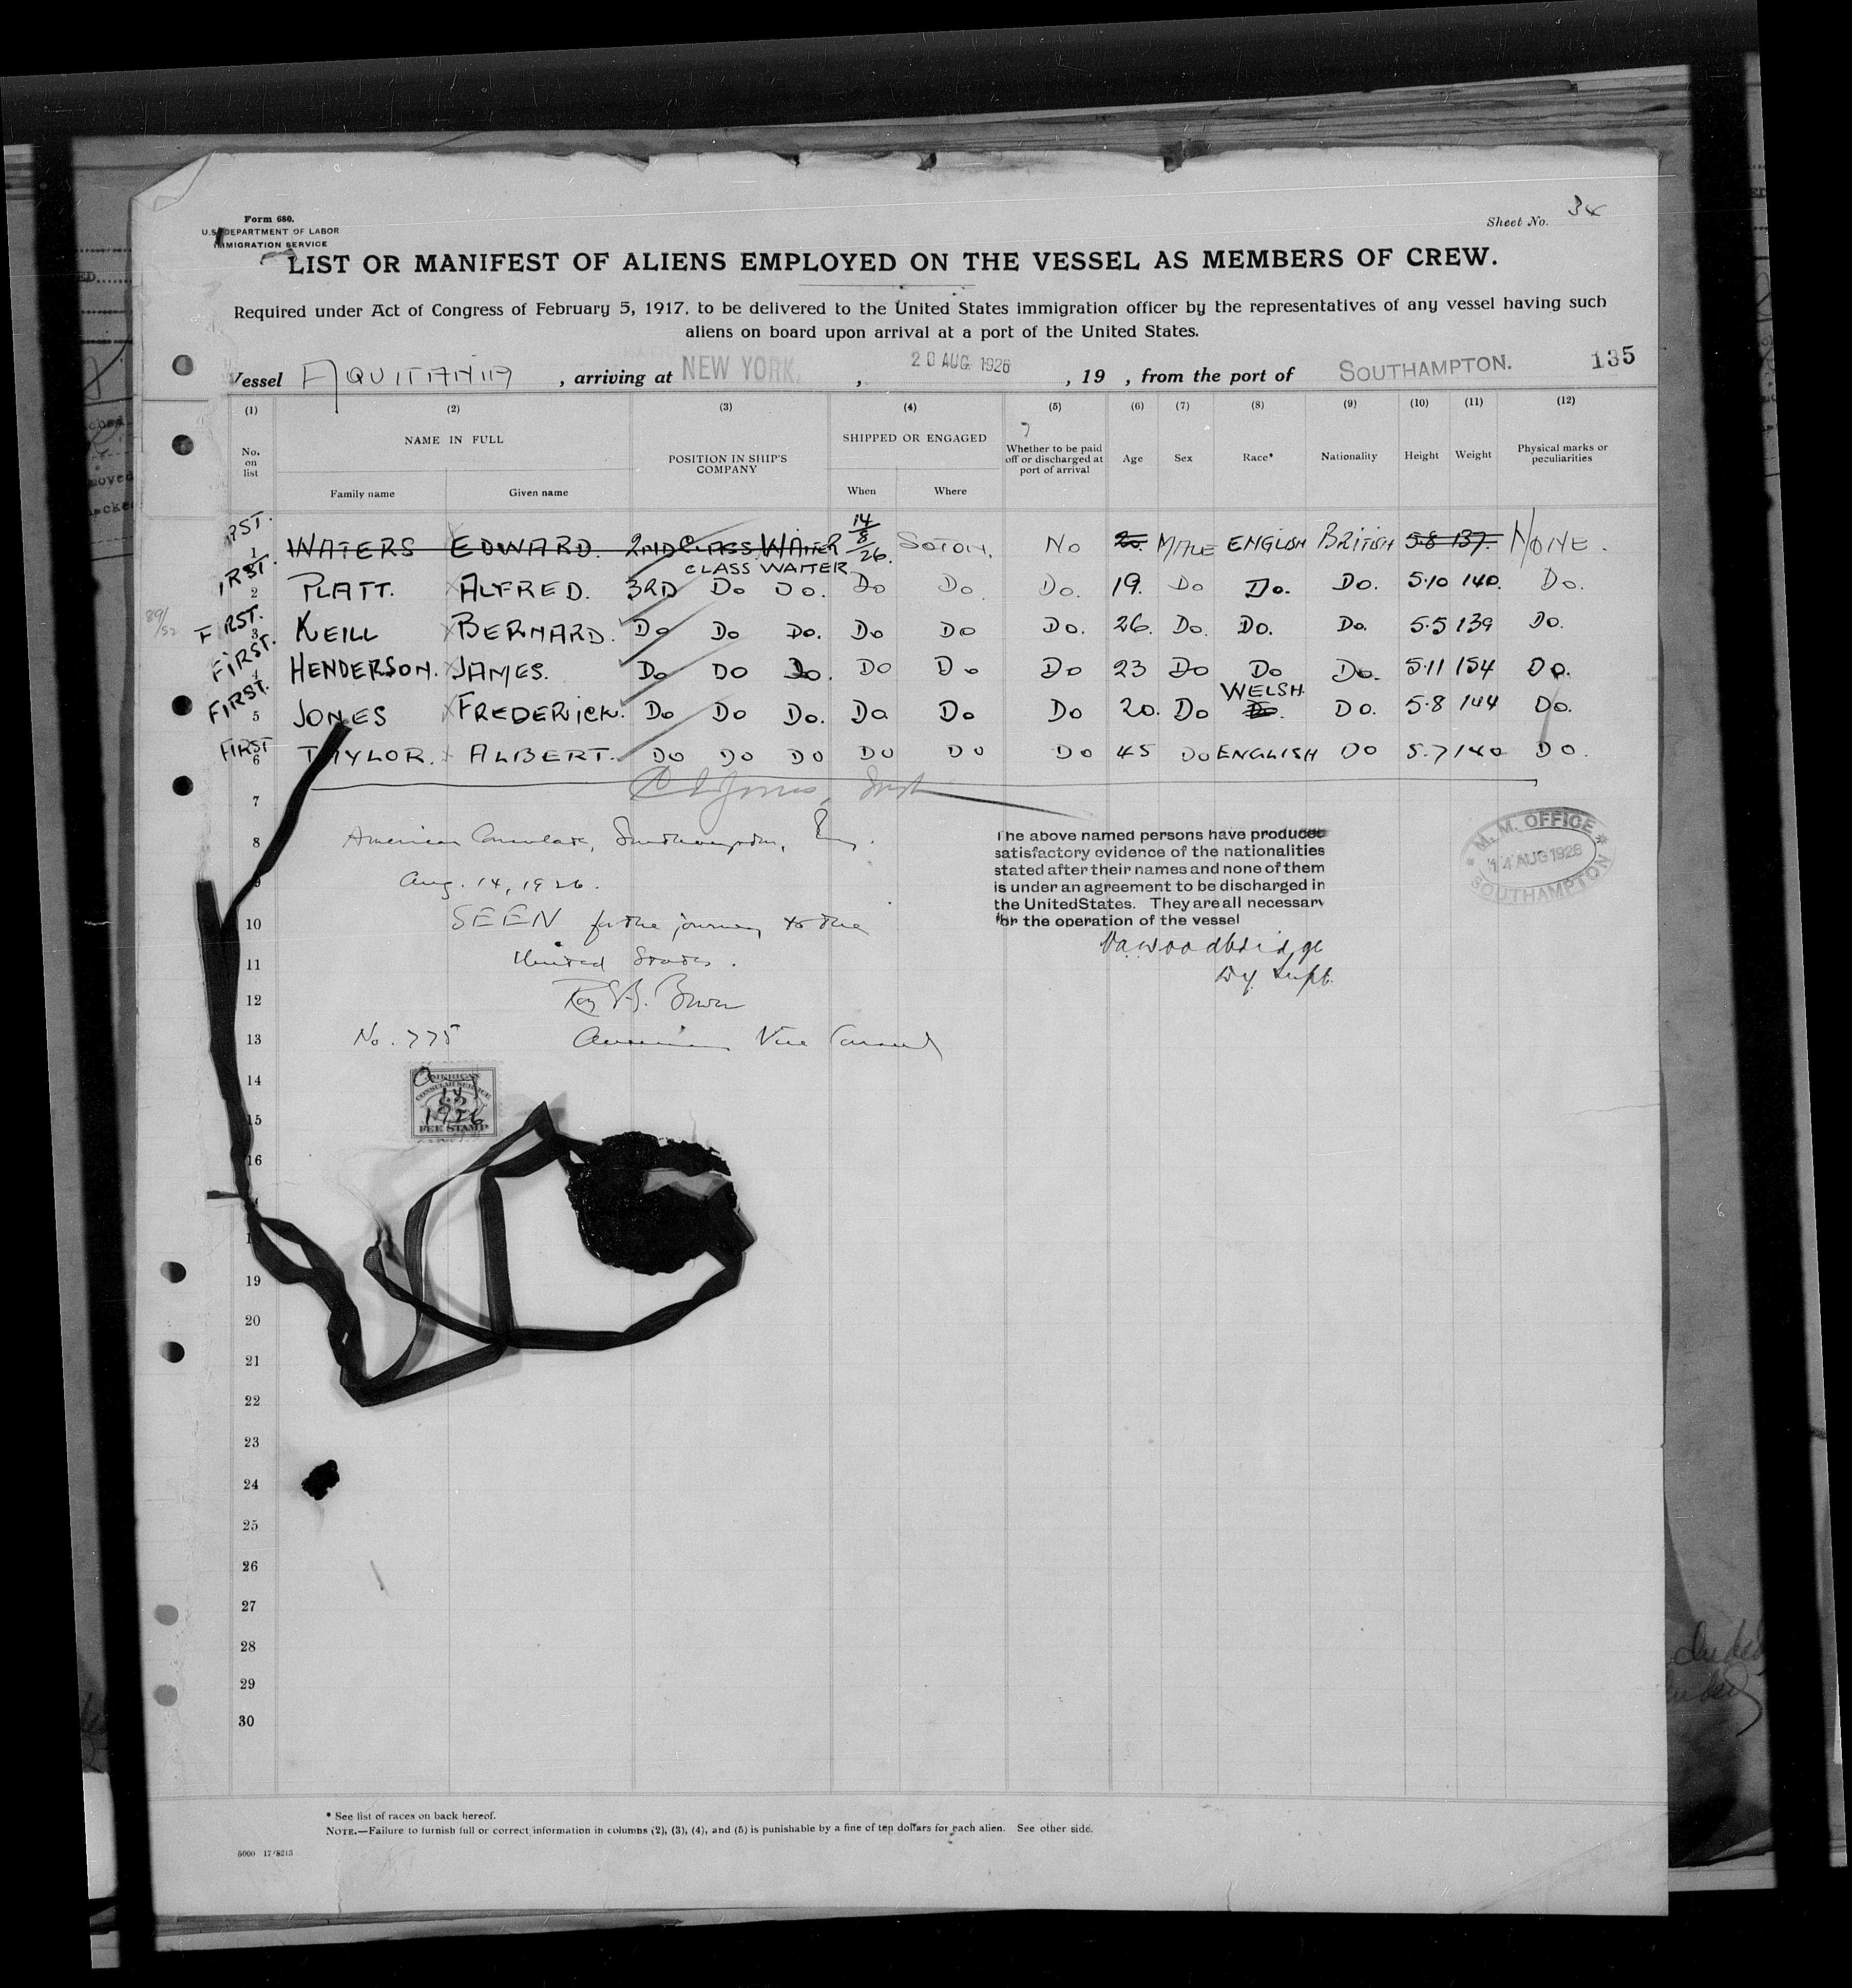 Form 680.
U.S. DEPARTMENT OF LABOR
IMMIGRATION SERVICE
Sheet No. 34
LIST OR MANIFEST OF ALIENS EMPLOYED ON THE VESSEL AS MEMBERS OF CREW.
Required under Act of Congress of February 5, 1917, to be delivered to the United States immigration officer by the representatives of any vessel having such
aliens on board upon arrival at a port of the United States.
Vessel AQUITANIA, arriving at NEW YORK, 20 AUG. 1926, 19 , from the port of SOUTHAMPTON. 135
(1) (2) (3) (4) (5) (6) (7) (8) (9) (10) (11) (12)
No. on list NAME IN FULL POSITION IN SHIP'S COMPANY SHIPPED OR ENGAGED Whether to be paid off or discharged at port of arrival Age Sex Race* Nationality Height Weight Physical marks or peculiarities
Family name Given name When Where
RST. 1 WATERS EDWARD. 2ND CLASS WAITER 14/8/26. SOTON. NO 20. MALE ENGLISH BRITISH 5-8 137. NONE.
CLASS WAITER
IRST. 2 PLATT. ALFRED. 3RD Do Do. Do Do. Do. 19. Do Do. Do. 5-10 140. Do.
89/52
FIRST. 3 KEILL BERNARD. Do Do Do. Do Do Do. 26. Do. Do. Do. 5-5 139 Do.
FIRST. 4 HENDERSON. JAMES. Do Do Do. Do Do Do 23 Do Do Do. 5-11 154 Do.
WELSH.
FIRST. 5 JONES FREDERICK. Do Do Do. Do Do Do 20. Do Do. Do. 5-8 144 Do.
FIRST 6 TAYLOR. ALBERT. Do Do Do Do Do Do 45 Do ENGLISH Do 5.7 140 Do.
7
8 American Consulate, Southampton, Eng.
The above named persons have produced
satisfactory evidence of the nationalities
stated after their names and none of them
is under an agreement to be discharged in
the United States. They are all necessary
for the operation of the vessel
M. M. OFFICE
14 AUG 1926
SOUTHAMPTON
9 Aug. 14, 1926.
10 SEEN for the journey to the
11 United States.
Dy. Supt.
12 Roy Brown
13 No. 775 American Vice Consul
14
AMERICAN
CONSULAR SERVICE
1926
FEE STAMP
15
16
19
20
21
22
23
24
25
26
27
28
29
30
* See list of races on back hereof.
NOTE.—Failure to furnish full or correct information in columns (2), (3), (4), and (5) is punishable by a fine of ten dollars for each alien. See other side.
5000 17/8213